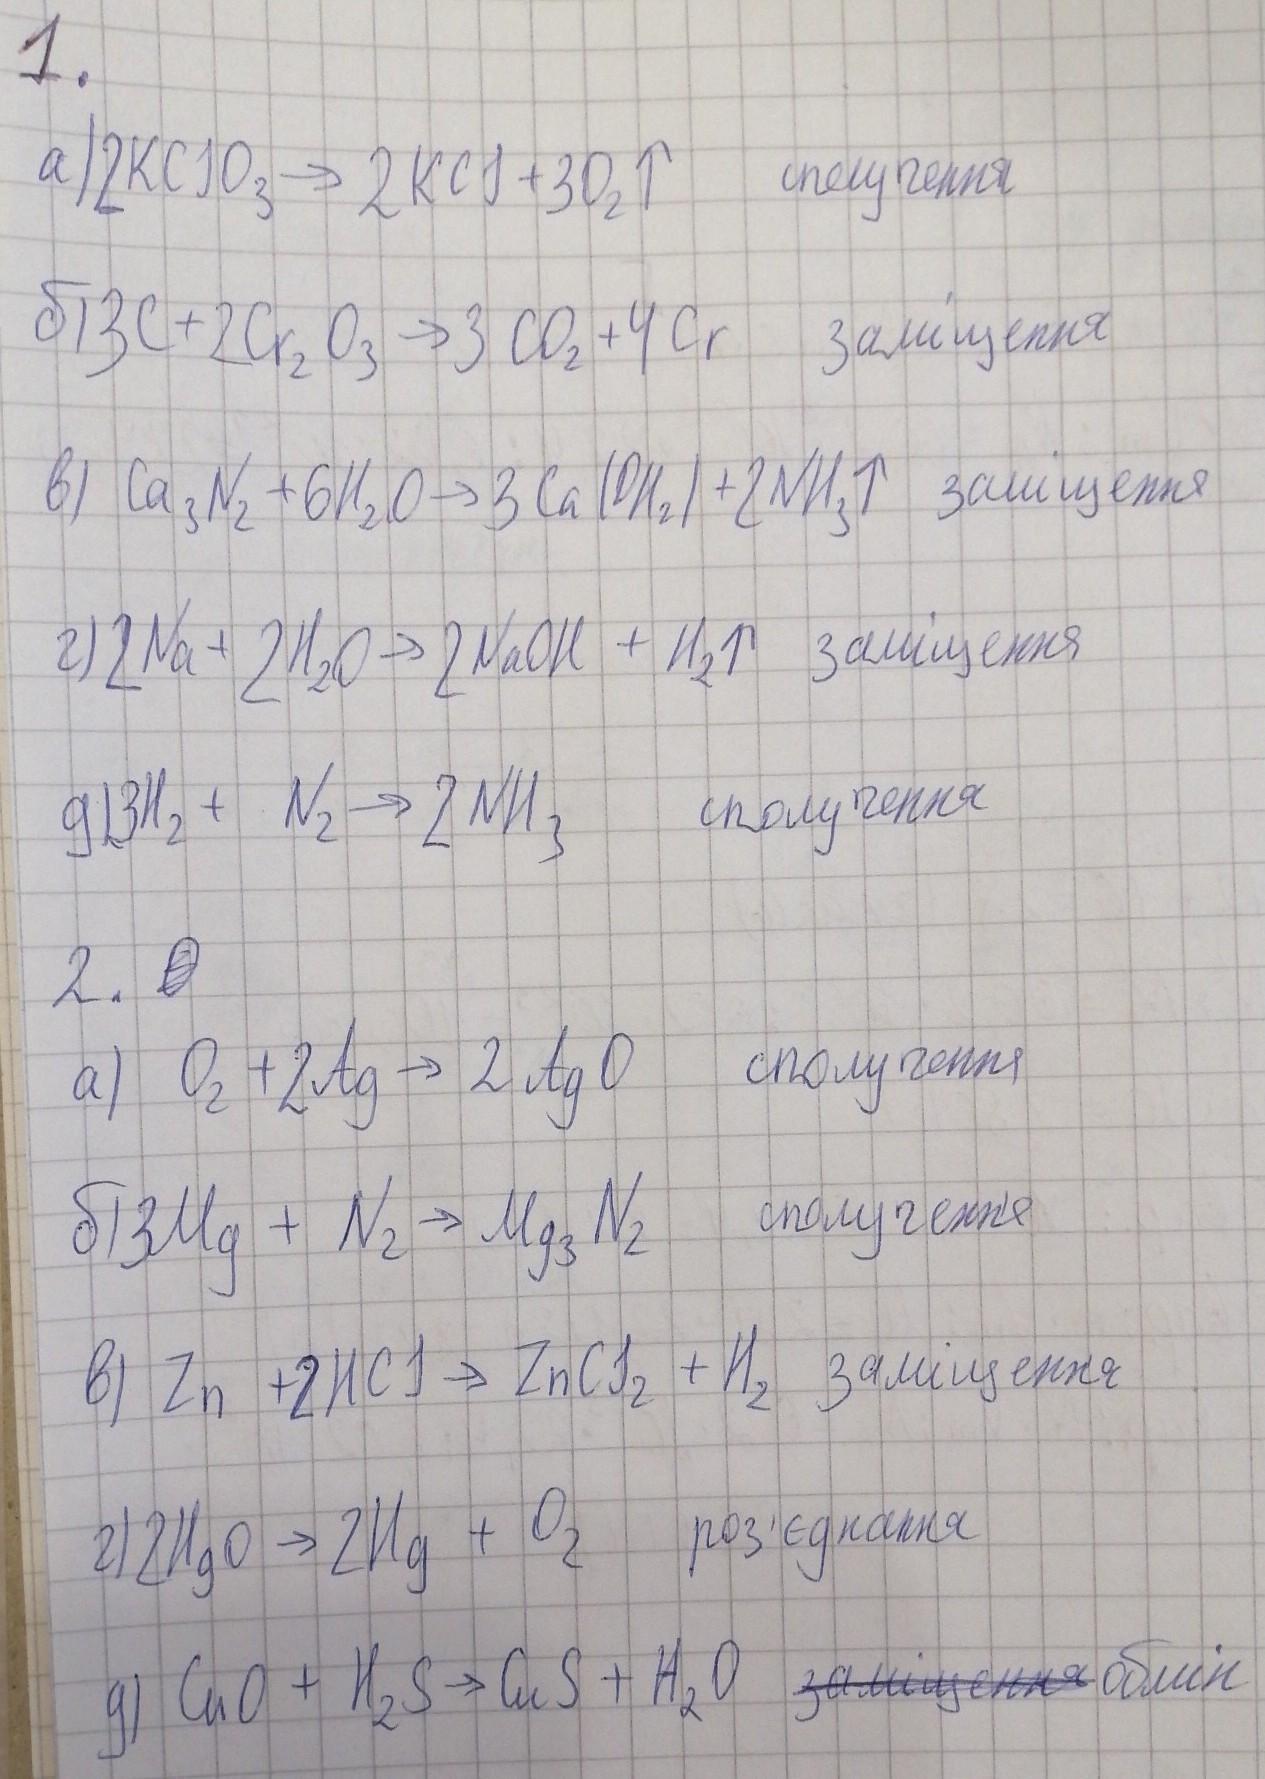 1.
а) 2KClO₃ → 2KCl + 3O₂↑ сполучення
б) 3C + 2Cr₂O₃ → 3CO₂ + 4Cr заміщення
в) Ca₃N₂ + 6H₂O → 3Ca(OH₂) + 2NH₃↑ заміщення
г) 2Na + 2H₂O → 2NaOH + H₂↑ заміщення
д) 3H₂ + N₂ → 2NH₃ сполучення
2.
а) O₂ + 2Ag → 2AgO сполучення
б) 3Mg + N₂ → Mg₃N₂ сполучення
в) Zn + 2HCl → ZnCl₂ + H₂ заміщення
г) 2HgO → 2Hg + O₂ роз'єднання
д) CuO + H₂S → CuS + H₂O заміщення обмін